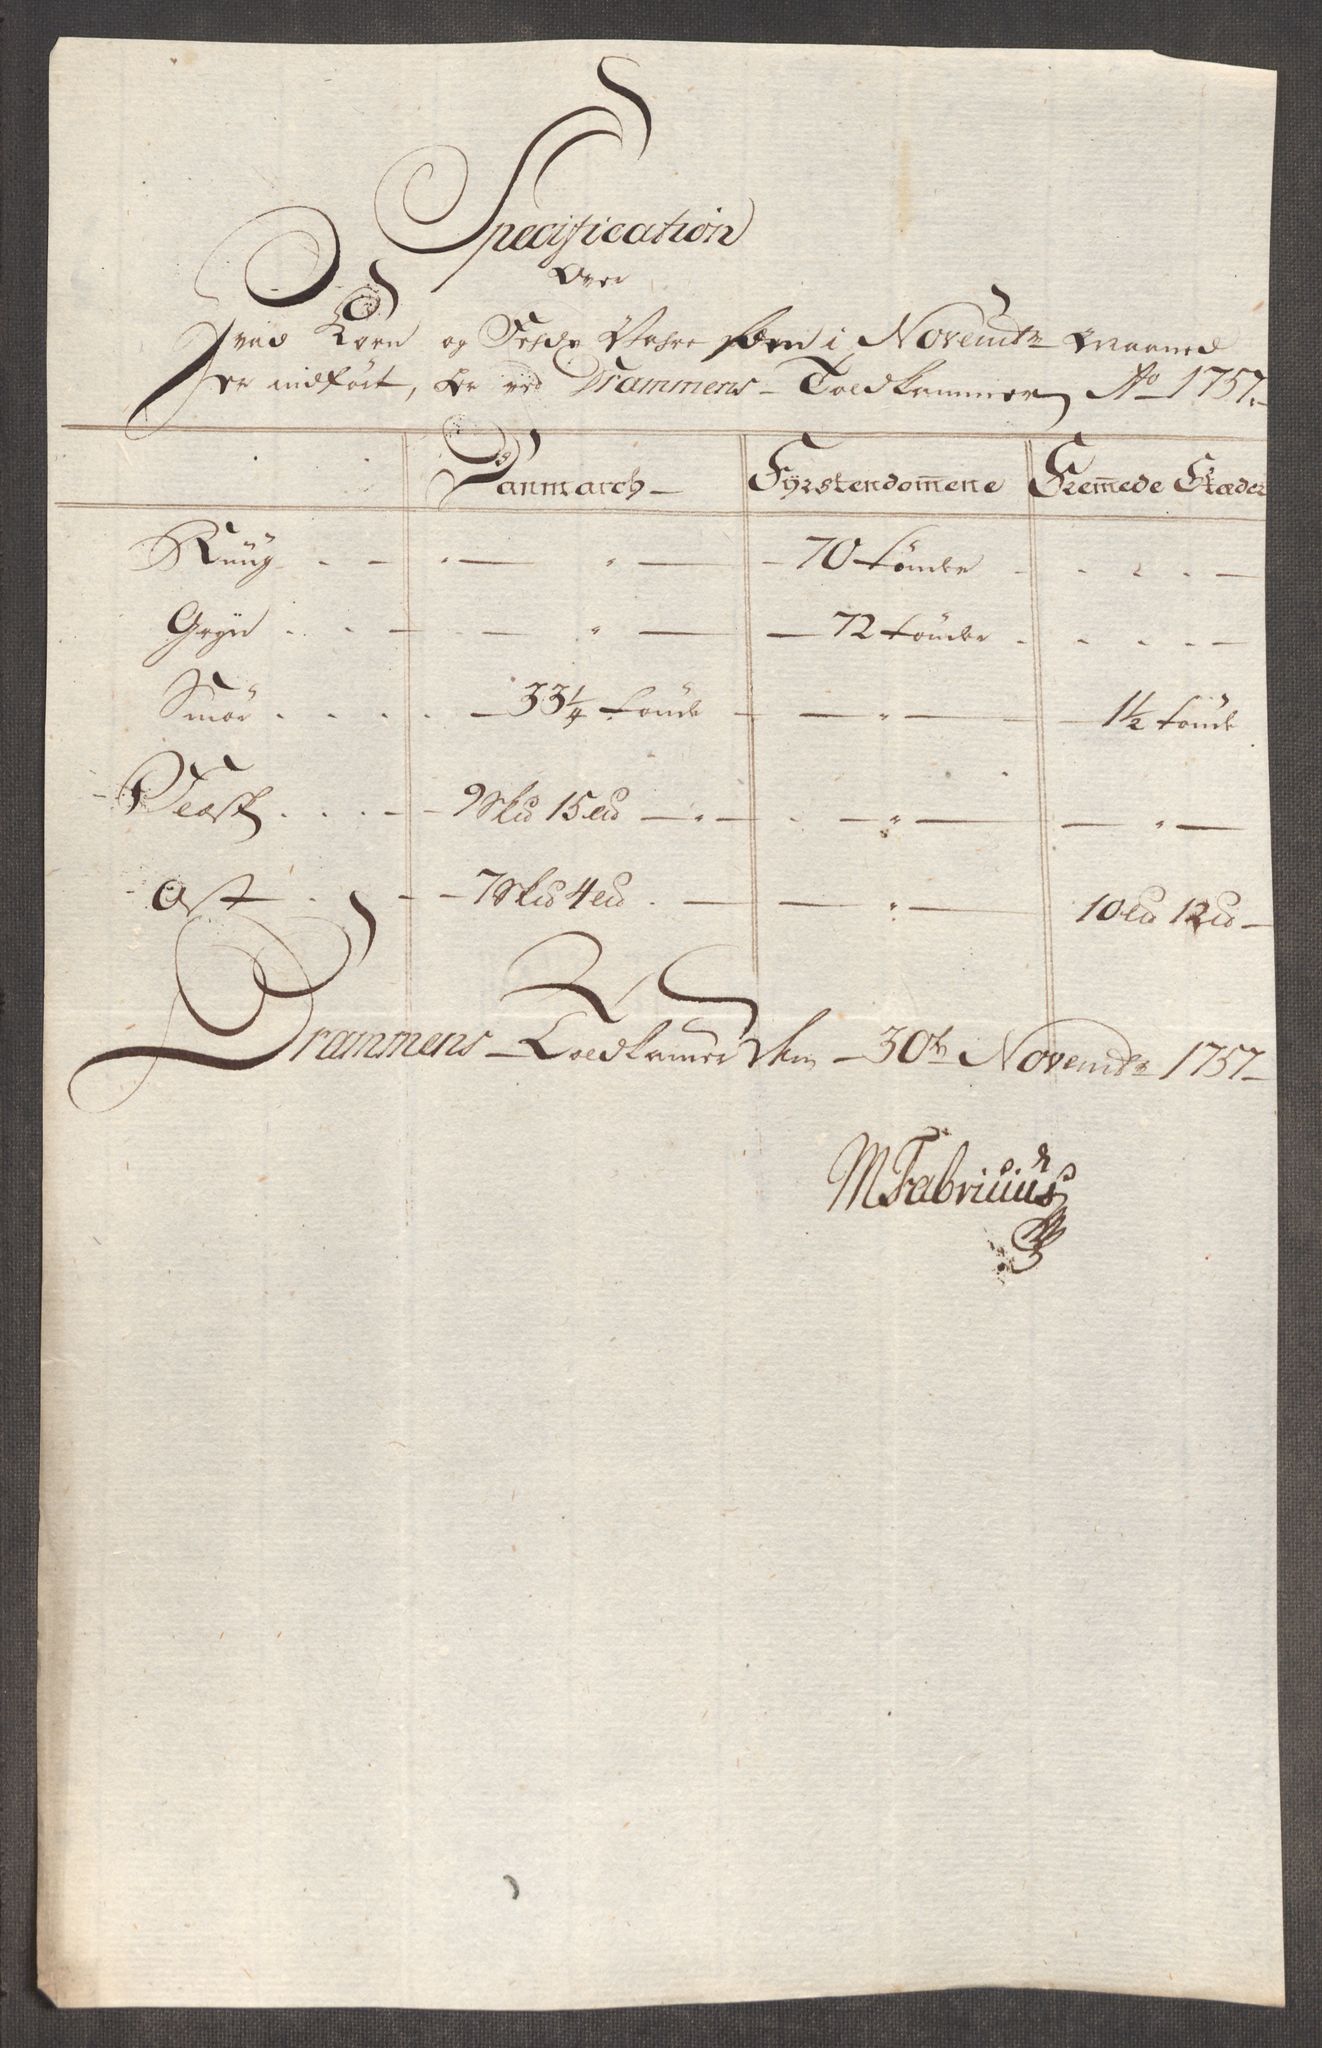 Specification
Over
Hvad Korn og Fede Vahre som i Novembr Maaned
er indført, her ved Drammens Toldkammer Ao 1757.
Danmarch Fyrstendomene Fremede Stæder
Ruug - - - " - 70 tønder - - -
Gryn - - - " - 72 tønder - - -
Smør - - - 33 1/4 tønde - " - 1 1/2 tønde
Flesk - - - 9 Sk℔ 15 L℔ - " - " -
Ost - - - 7 Sk℔ 4 L℔ - " - 10 L℔ 12 ℔
Drammens Toldkamer den 30te Novembr 1757
MFabricius